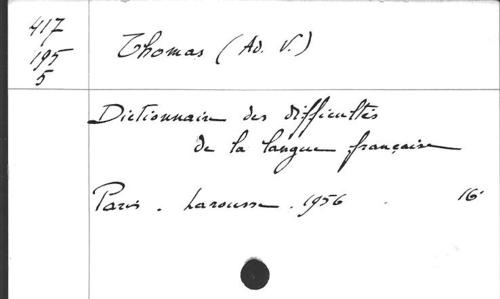 417
195
5
Thomas (Ad. V.)
Dictionnaire des difficultés
de la langue française
Paris. Larousse. 1956. 16°